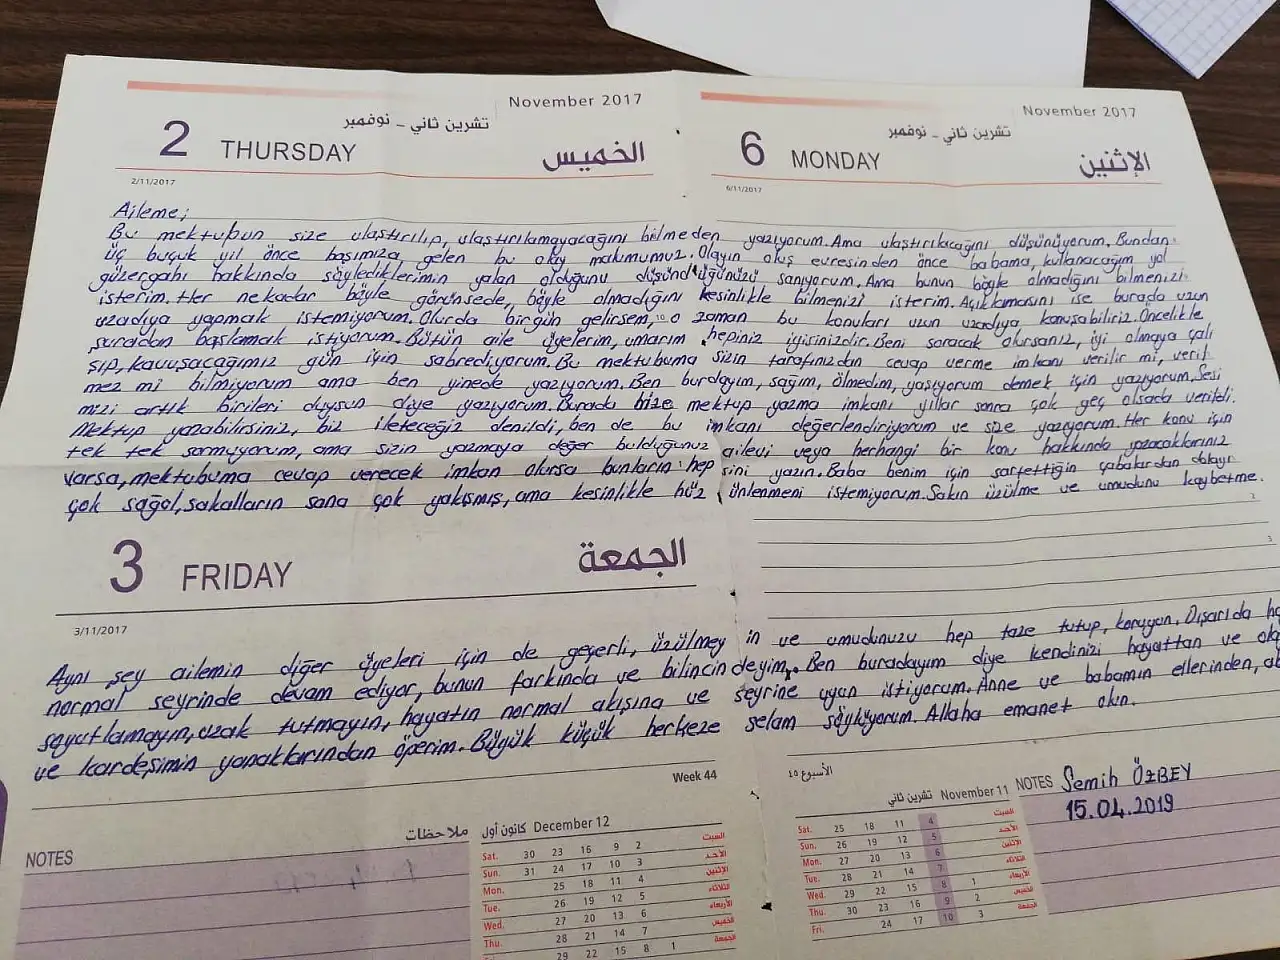 November 2017
تشرين ثاني - نوفمبر
2 THURSDAY الخميس
2/11/2017
November 2017
تشرين ثاني - نوفمبر
6 MONDAY الإثنين
6/11/2017
Aileme;
Bu mektubun size ulaştırılıp, ulaştırılamayacağını bilmeden yazıyorum. Ama ulaştırılacağını düşünüyorum. Bundan
üç buçuk yıl önce başımıza gelen bu olay malumumuz. Olayın oluş evresinden önce babama, kullanacağım yol
güzergahı hakkında söylediklerimin yalan olduğunu düşündüğünüzü sanıyorum. Ama bunun böyle olmadığını bilmenizi
isterim. Her ne kadar böyle görünsede, böyle olmadığını kesinlikle bilmenizi isterim. Açıklamasını ise burada uzun
uzadıya yapmak istemiyorum. Olurda birgün gelirsem, o zaman bu konuları uzun uzadıya konuşabiliriz. Öncelikle
şuradan başlamak istiyorum. Bütün aile üyelerim, umarım hepiniz iyisinizdir. Beni soracak olursanız, iyi olmaya çalı
şıp, kavuşacağımız gün için sabrediyorum. Bu mektubuma sizin tarafınızdan cevap verme imkanı verilir mi, veril
mez mi bilmiyorum ama ben yinede yazıyorum. Ben burdayım, sağım, ölmedim, yaşıyorum demek için yazıyorum. Sesi
mizi artık birileri duysun diye yazıyorum. Burada bize mektup yazma imkanı yıllar sonra çok geç olsada verildi.
Mektup yazabilirsiniz, biz ileteceğiz denildi, ben de bu imkanı değerlendiriyorum ve size yazıyorum. Her konu için
tek tek sormuyorum, ama sizin yazmaya değer bulduğunuz ailevi veya herhangi bir konu hakkında yazacaklarınız
varsa, mektubuma cevap verecek imkan olursa bunların hepsini yazın. Baba benim için sarfettiğin çabalardan dolayı
çok sağol, sakalların sana çok yakışmış, ama kesinlikle hüzünlenmeni istemiyorum. Sakın üzülme ve umudunu kaybetme.
2
3
3 FRIDAY الجمعة
3/11/2017
Aynı şey ailemin diğer üyeleri için de geçerli, üzülmeyin ve umudunuzu hep taze tutup, koruyun. Dışarıda ha
normal seyrinde devam ediyor, bunun farkında ve bilincindeyim. Ben buradayım diye kendinizi hayattan ve ola
soyutlamayın, uzak tutmayın, hayatın normal akışına ve seyrine uyun istiyorum. Anne ve babamın ellerinden, ab
ve kardeşimin yanaklarından öperim. Büyük küçük herkeze selam söylüyorum. Allaha emanet olun.
Week 44
الأسبوع ٤٥
NOTES ملاحظات
كانون أول December 12
Sat. 30 23 16 9 2 السبت
Sun. 31 24 17 10 3 الأحد
Mon. 25 18 11 4 الإثنين
Tue. 26 19 12 5 الثلاثاء
Wed. 27 20 13 6 الأربعاء
Thu. 28 21 14 7 الخميس
29 22 15 8 1 الجمعة
تشرين ثاني November 11
Sat. 25 18 11 4 السبت
Sun. 26 19 12 5 الأحد
Mon. 27 20 13 6 الإثنين
Tue. 28 21 14 7 الثلاثاء
Wed. 29 22 15 8 1 الأربعاء
Thu. 30 23 16 9 2 الخميس
Fri. 24 17 10 3 الجمعة
NOTES Semih ÖZBEY
15.04.2019